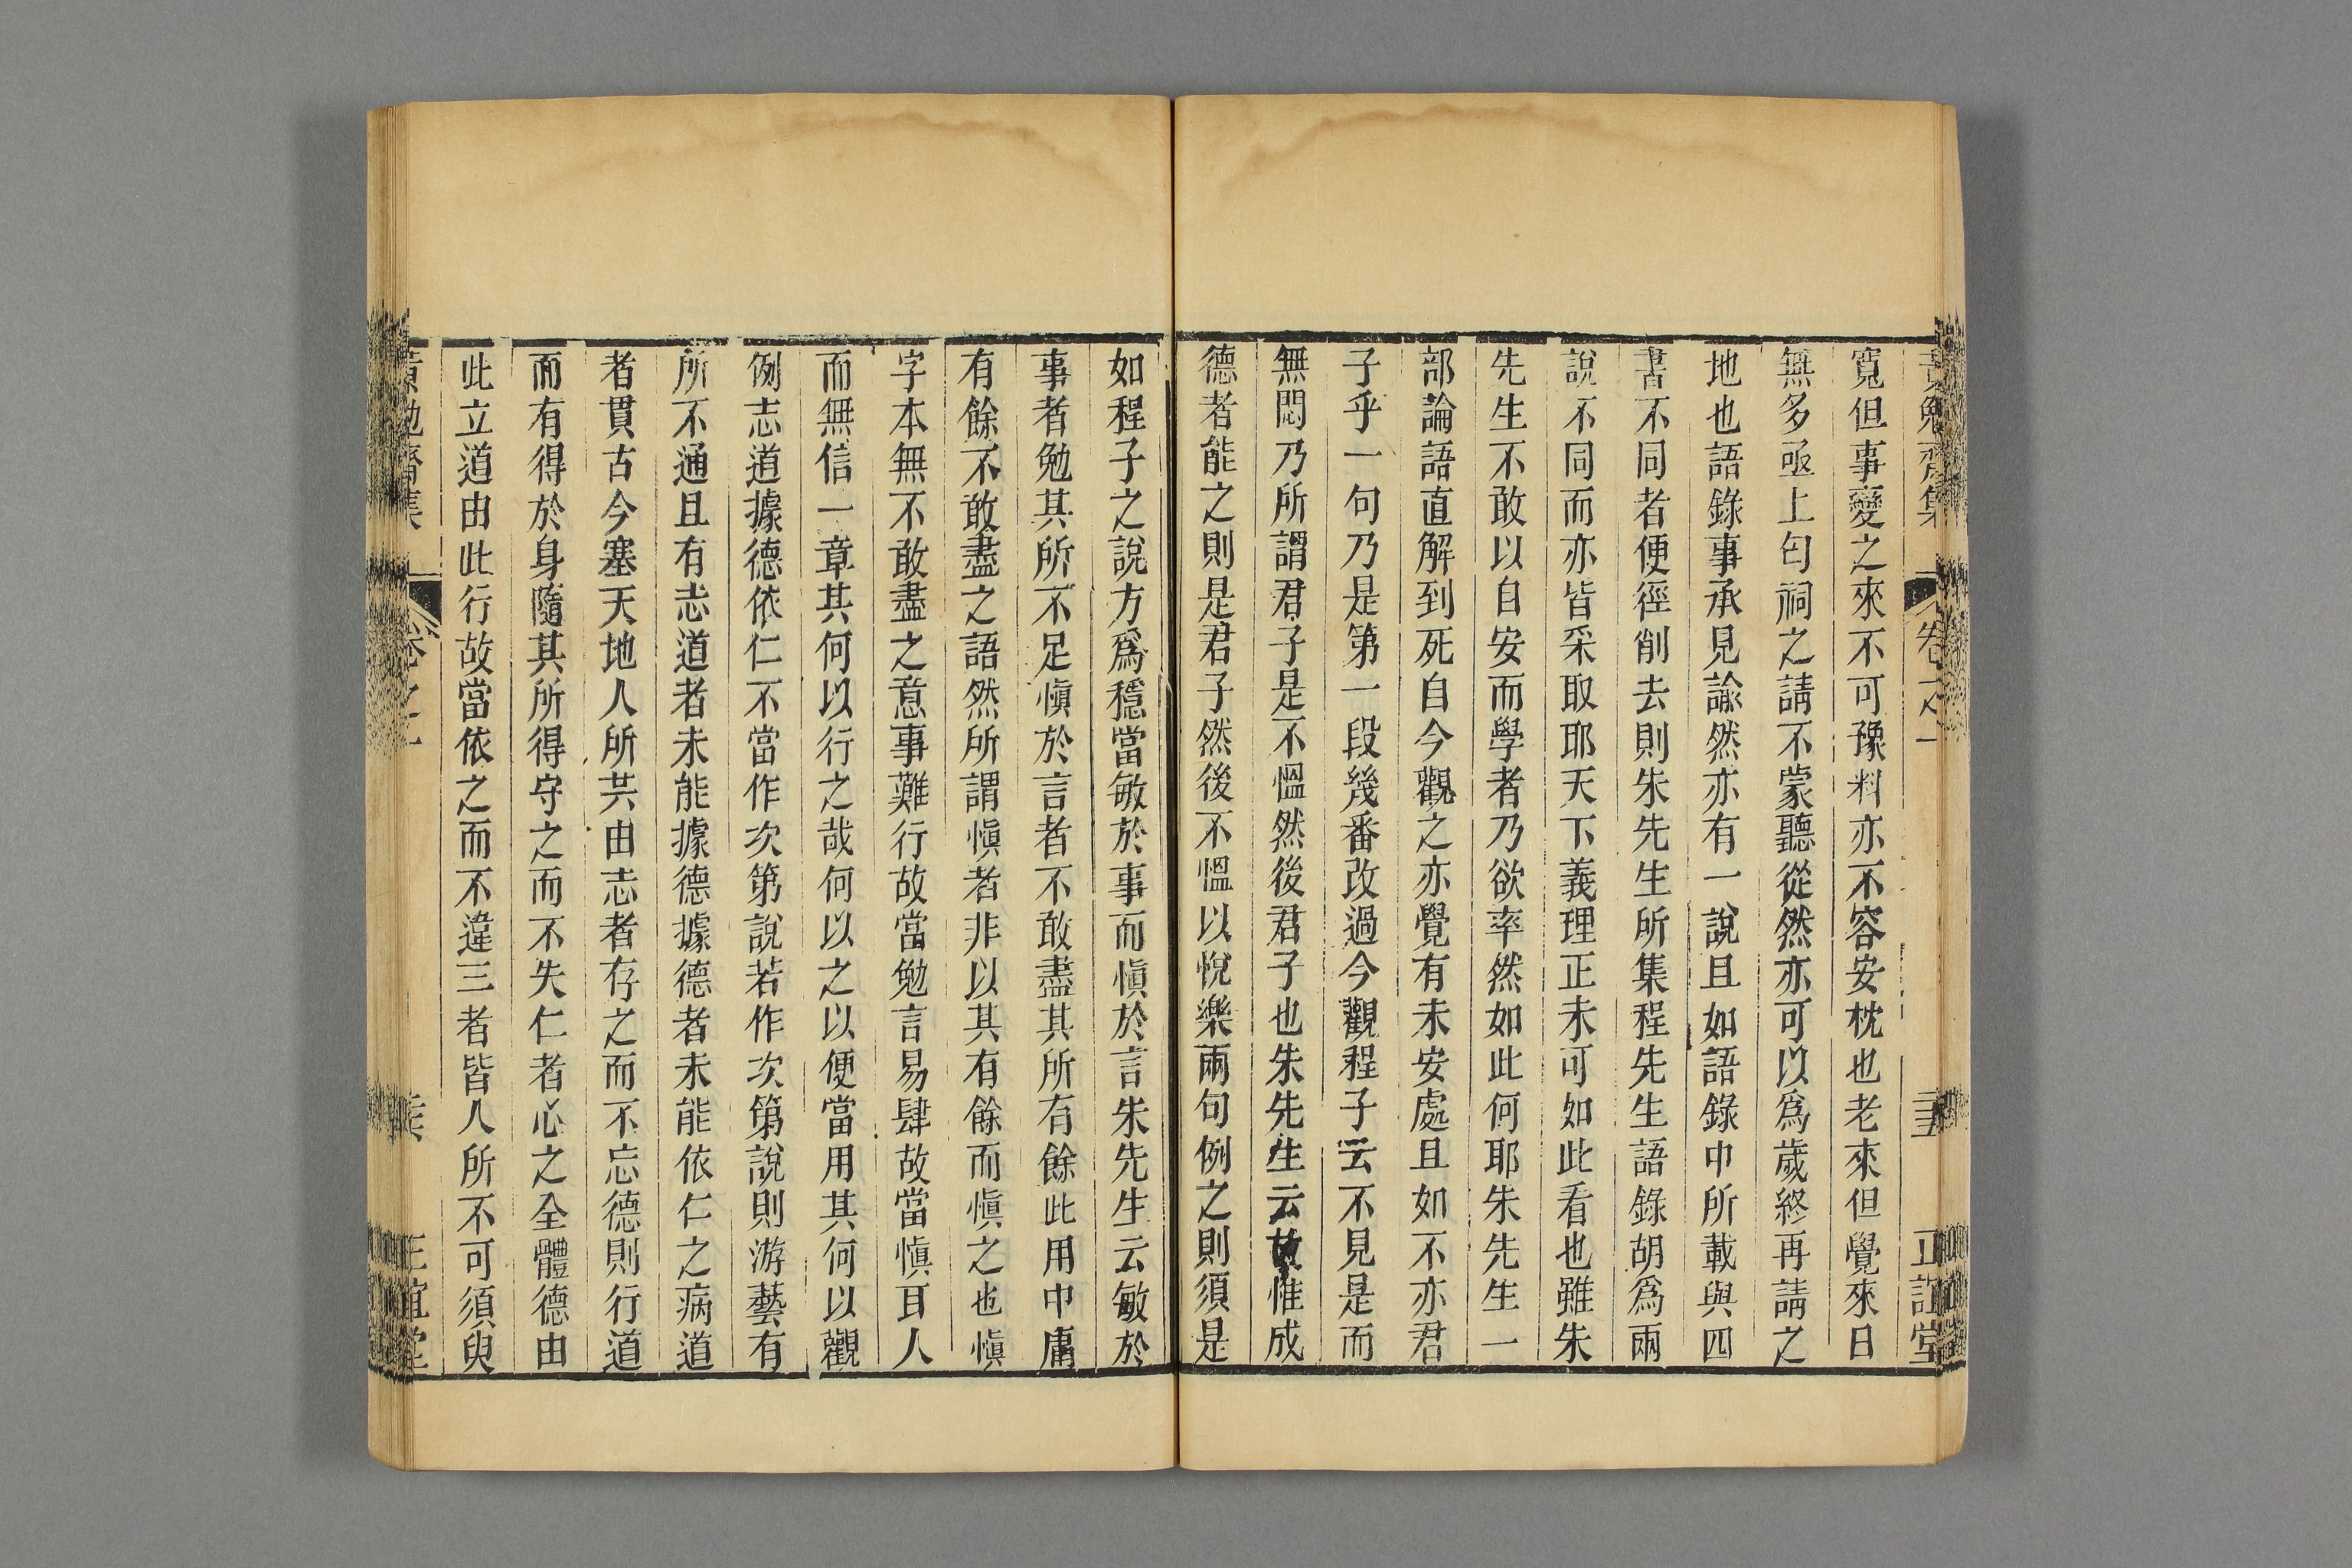 黃勉齋集 卷之一 三五 正誼堂
寬但事變之來不可豫料亦不容安枕也老來但覺來日
無多亟上匄祠之請不蒙聽從然亦可以爲歲終再請之
地也語錄事承見諭然亦有一說且如語錄中所載與四
書不同者便徑削去則朱先生所集程先生語錄胡爲兩
說不同而亦皆采取耶天下義理正未可如此看也雖朱
先生不敢以自安而學者乃欲率然如此何耶朱先生一
部論語直解到死自今觀之亦覺有未安處且如不亦君
子乎一句乃是第一段幾番改過今觀程子云不見是而
無悶乃所謂君子是不慍然後君子也朱先生云故惟成
德者能之則是君子然後不慍以悅樂兩句例之則須是
如程子之說方爲穩當敏於事而愼於言朱先生云敏於
事者勉其所不足愼於言者不敢盡其所有餘此用中庸
有餘不敢盡之語然所謂愼者非以其有餘而愼之也愼
字本無不敢盡之意事難行故當勉言易肆故當愼耳人
而無信一章其何以行之哉何以之以便當用其何以觀
例志道據德依仁不當作次第說若作次第說則游藝有
所不通且有志道者未能據德據德者未能依仁之病道
者貫古今塞天地人所共由志者存之而不忘德則行道
而有得於身隨其所得守之而不失仁者心之全體德由
此立道由此行故當依之而不違三者皆人所不可須臾
黃勉齋集 卷之一 正誼堂